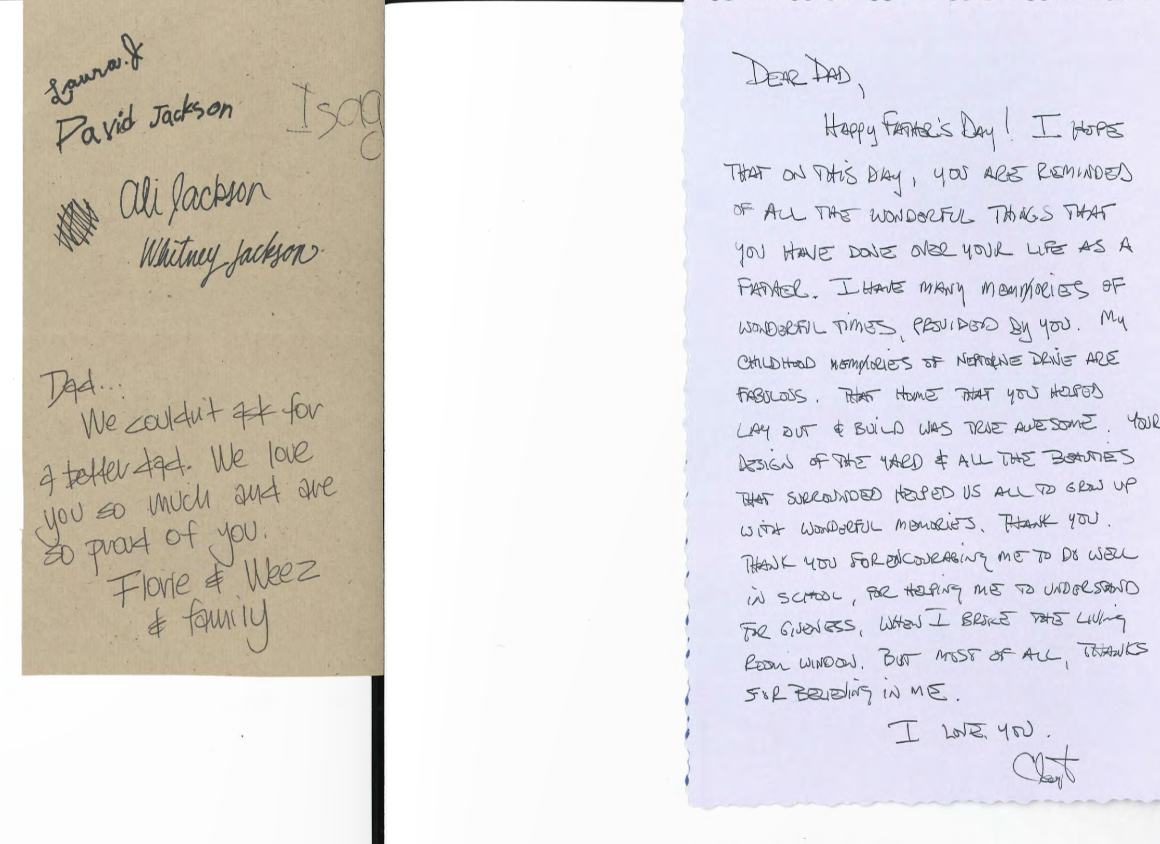 Laura.J
David Jackson
Isaa
Ali Jackson
Whitney Jackson
Dad...
We couldn't ask for
a better dad. We love
you so much and are
so proud of you.
Florie & Weez
& family
DEAR DAD,
HAPPY FATHER'S DAY! I HOPE
THAT ON THIS DAY, YOU ARE REMINDED
OF ALL THE WONDERFUL THINGS THAT
YOU HAVE DONE OVER YOUR LIFE AS A
FATHER. I HAVE MANY MEMMORIES OF
WONDERFUL TIMES, PROVIDED BY YOU. MY
CHILDHOOD MEMMORIES OF NEPTORNE DRIVE ARE
FABULOUS. THAT HOME THAT YOU HELPED
LAY OUT & BUILD WAS TRUE AWESOME. YOUR
DESIGN OF THE YARD & ALL THE BEAUTIES
THAT SURROUNDED HELPED US ALL TO GROW UP
WITH WONDERFUL MEMORIES. THANK YOU.
THANK YOU FOR ENCOURAGING ME TO DO WELL
IN SCHOOL, FOR HELPING ME TO UNDERSTAND
FOR GIVENESS, WHEN I BROKE THE LIVING
ROOM WINDOW. BUT MOST OF ALL, THANKS
FOR BELIEVING IN ME.
I LOVE YOU.